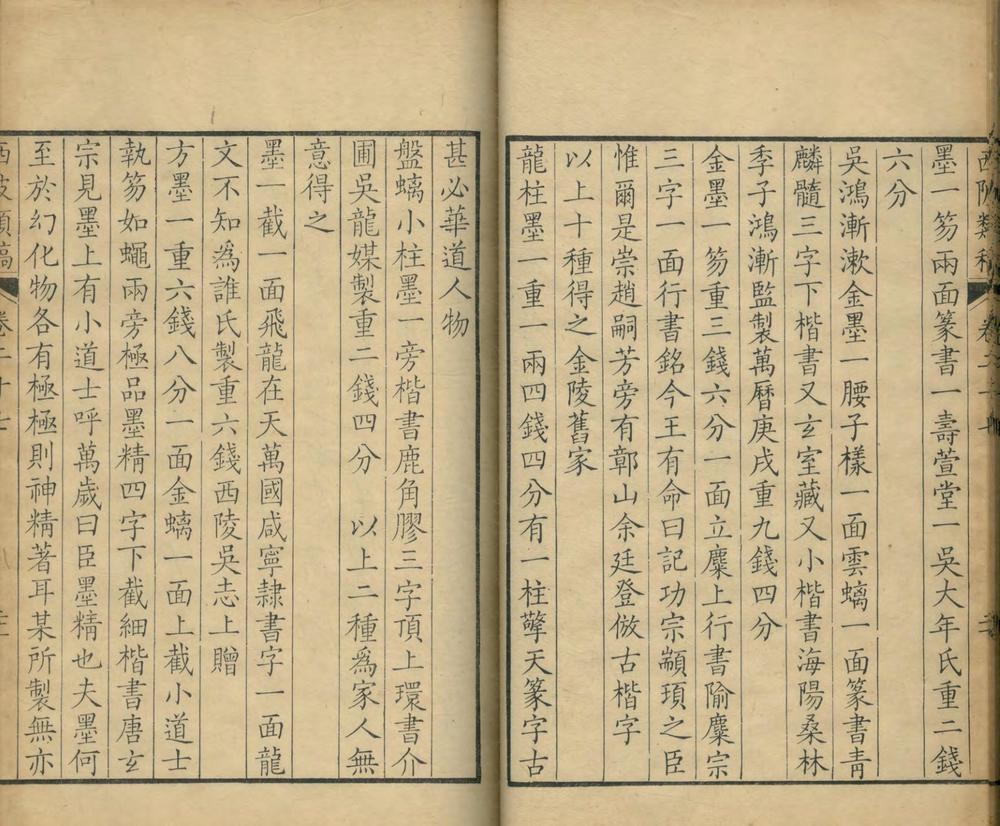 墨一笏兩面篆書一壽萱堂一吳大年氏重二錢
六分
吳鴻漸漱金墨一腰子樣一面雲螭一面篆書青
麟髓三字下楷書又玄室藏又小楷書海陽桑林
季子鴻漸監製萬曆庚戌重九錢四分
金墨一笏重三錢六分一面立麋上行書隃麋宗
三字一面行書銘今王有命曰記功宗顓頊之臣
惟爾是崇趙嗣芳旁有鄣山余廷登倣古楷字
以上十種得之金陵舊家
龍柱墨一重一兩四錢四分有一柱擎天篆字古
甚必華道人物
盤螭小柱墨一旁楷書鹿角膠三字頂上環書介
圃吳龍媒製重二錢四分 以上二種爲家人無
意得之
墨一截一面飛龍在天萬國咸寧隸書字一面龍
文不知爲誰氏製重六錢西陵吳志上贈
方墨一重六錢八分一面金螭一面上截小道士
執笏如蠅兩旁極品墨精四字下截細楷書唐玄
宗見墨上有小道士呼萬歲曰臣墨精也夫墨何
至於幻化物各有極極則神精著耳某所製無亦
西陂類稿 卷二十七